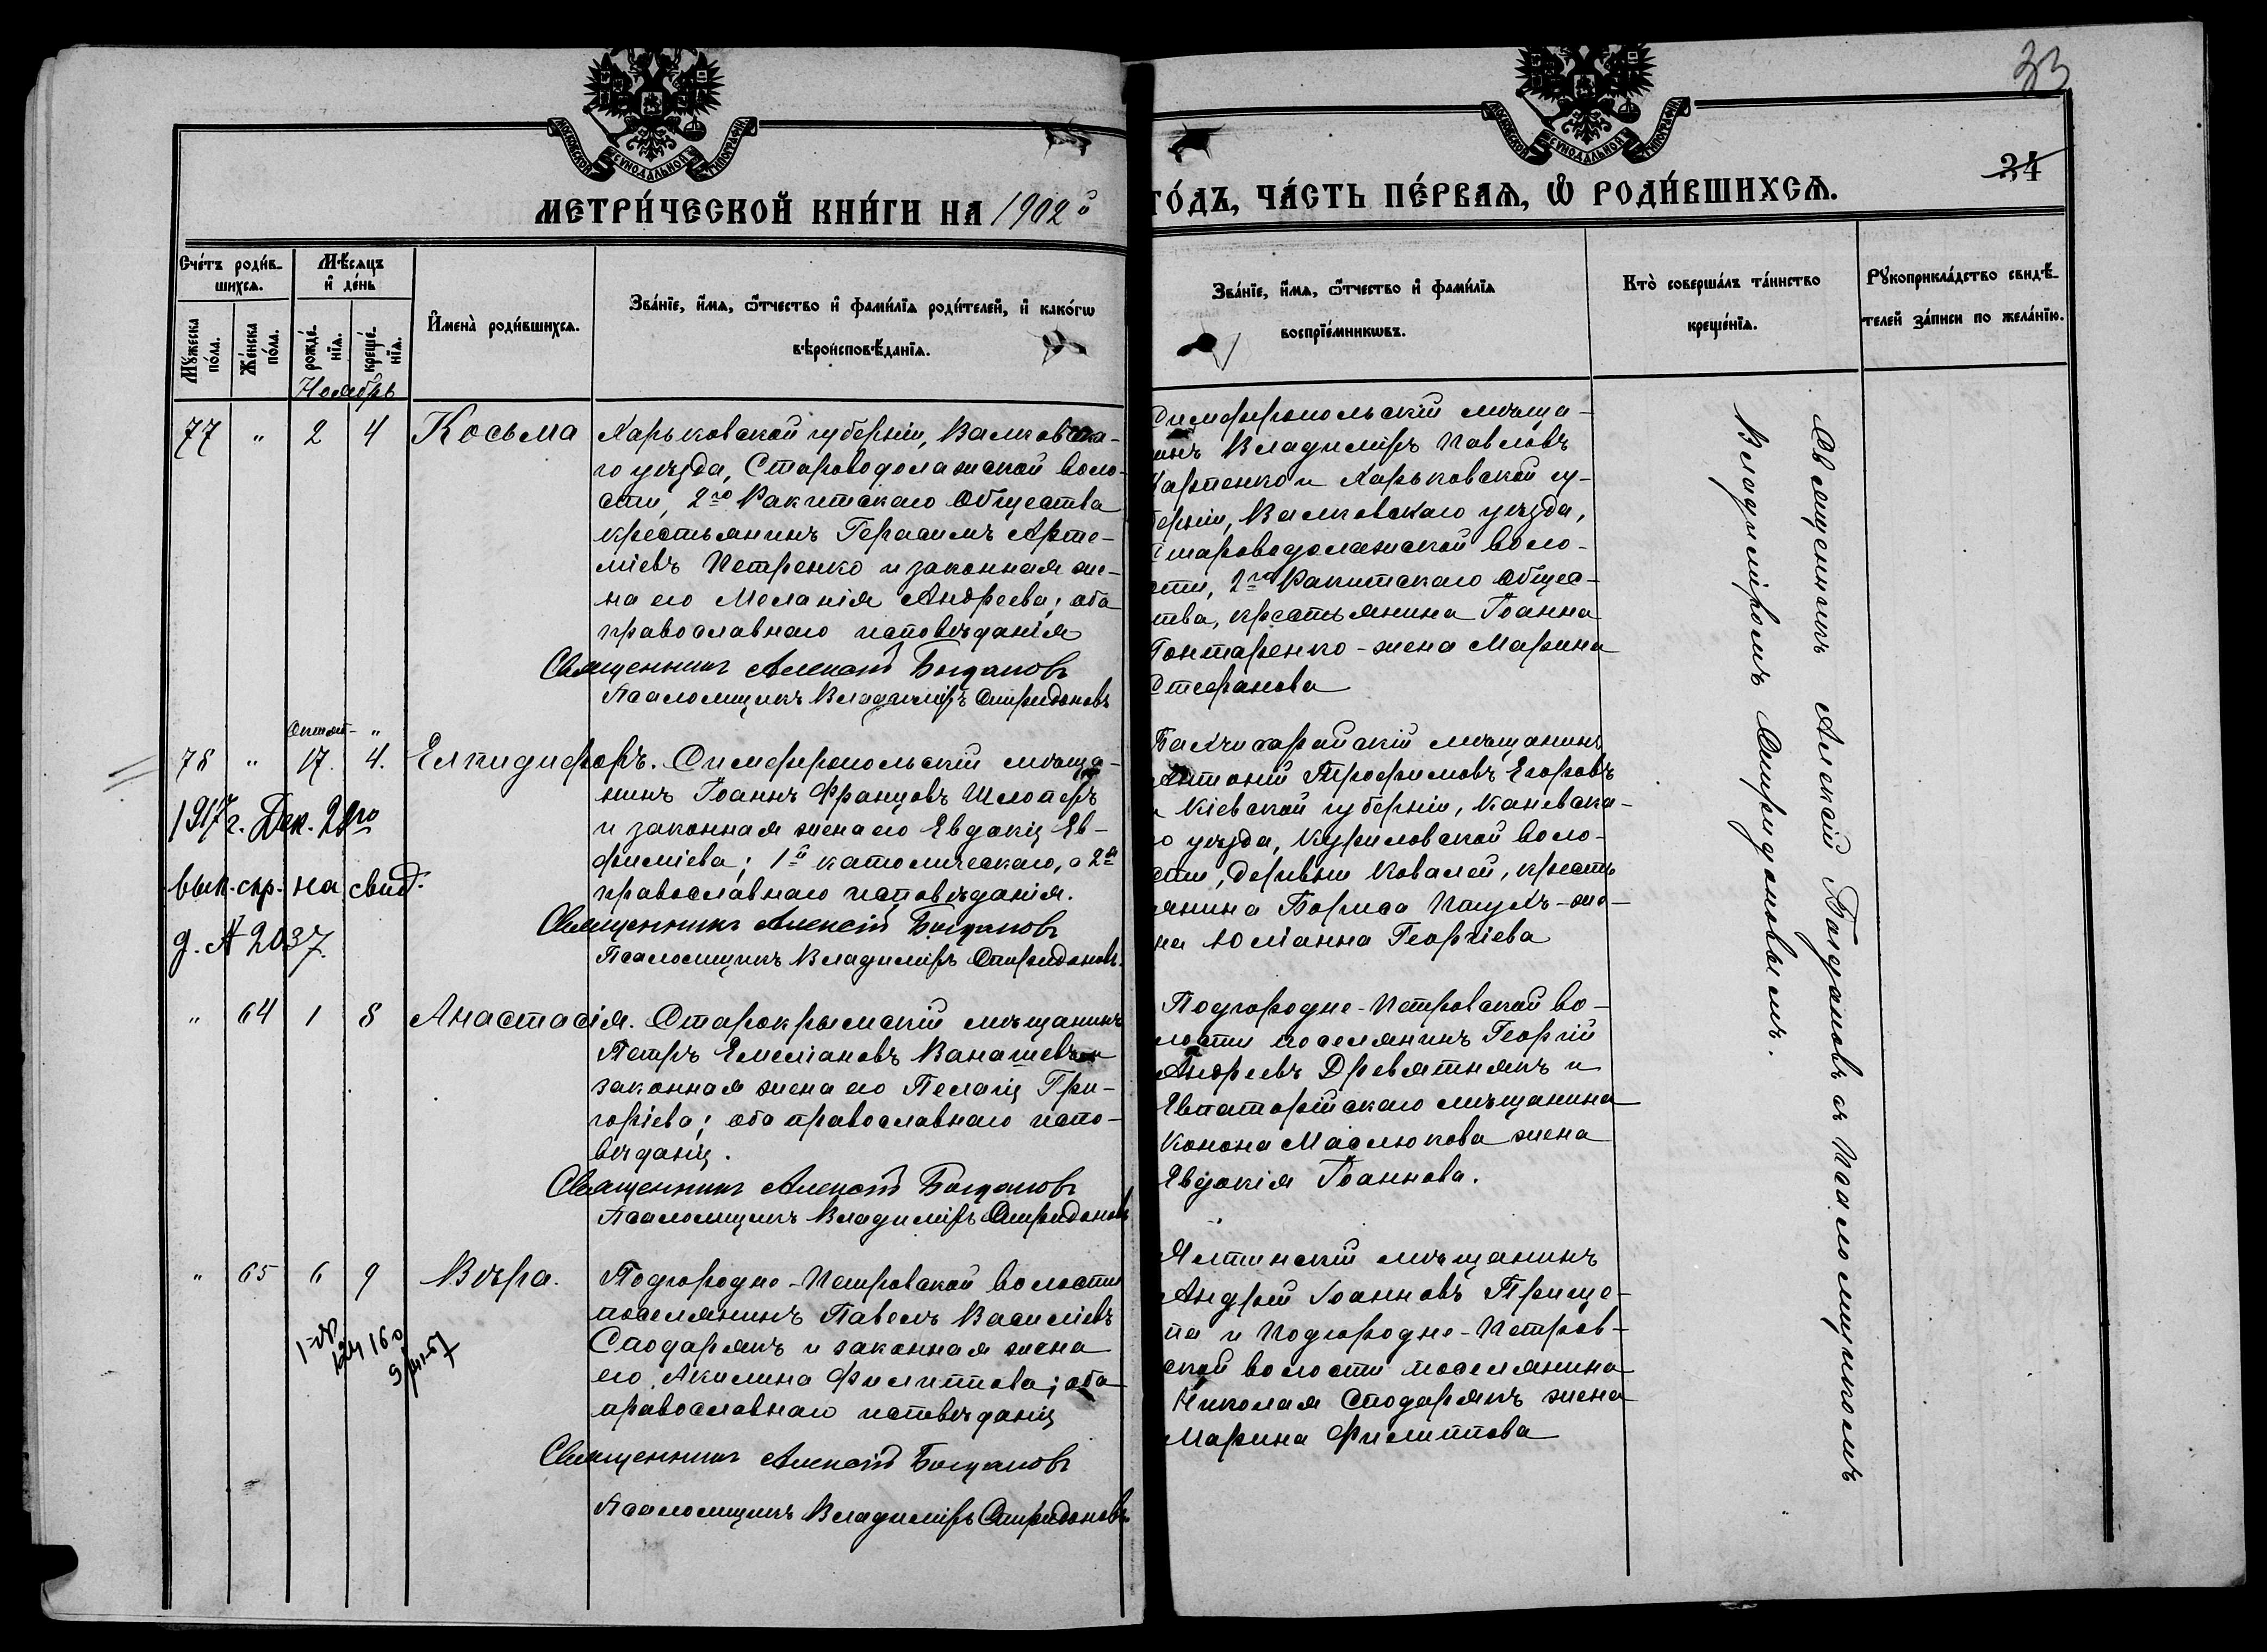 33
34
МОСКОВСКОЙ СУНОДАЛЬНОЙ ТИПОГРАФІИ
МОСКОВСКОЙ СУНОДАЛЬНОЙ ТИПОГРАФІИ
МЕТРИ́ЧЕСКОЙ КНИ́ГИ НА 1902й
ГО́ДЪ, ЧА́СТЬ ПЕ́РВАѦ, Ѿ РОДИ́ВШИХСѦ.
Сче́тъ роди́в-
шихсѧ.
Мꙋжеска по́ла.
Же́нска по́ла.
Мѣ́сѧцъ
и҆ де́нь
рожде́-
нїѧ.
креще́-
нїѧ.
И҆мена̀ роди́вшихсѧ.
Зва́нїе, и҆́мѧ, ѻ҆́тчество и҆ фами́лїѧ роди́телей, и҆ како́гѡ
вѣроисповѣ́данїѧ.
Зва́нїе, и҆́мѧ, ѻ҆́тчество и҆ фами́лїѧ
воспрїе́мникѡвъ.
Кто̀ соверша́лъ та́инство
креще́нїѧ.
Рꙋкоприкла́дство свидѣ́-
телей за́писи по жела́нїю.
Ноябрь
77 " 2 4 Косьма
Харьковской губерніи, Валковска-
го уѣзда, Староводолажской воло-
сти, 2го Ракитскаго Общества
крестьянинъ Герасимъ Арте-
міевъ Петренко и законная же-
на его Меланія Андреева; оба
православнаго исповѣданія
Священникъ Алексій Богдановъ
Псаломщикъ Владиміръ Спиридоновъ
Симферопольскій мѣща-
нинъ Владиміръ Павловъ
Карпенко и Харьковской гу-
берніи, Валковскаго уѣзда,
Староводолажской воло-
сти, 2го Ракитскаго Общес-
тва, крестьянина Іоанна
Гонтаренко - жена Марина
Стефанова
Октяб- "
78 " 17. 4. Елпидифоръ. Симферопольскій мѣща-
нинъ Іоаннъ Францовъ Шлоперъ
и законная жена его Евдокія Ев-
фиміева; 1й католическаго, а 2я
православнаго исповѣданія.
Священникъ Алексій Богдановъ
Псаломщикъ Владиміръ Спиридоновъ.
1917 г. Дек. 28го
вып. скр. на свид.
д. № 2037.
Бахчисарайскій мѣщанинъ
Антоній Трофимовъ Егоровъ
и Кіевской губерніи, Каневска-
го уѣзда, Куриловской воло-
сти, деревни Ковалей, кресть
янина Бориса Пацукъ - же-
на Юліанна Георгіева
" 64 1 8 Анастасія. Старокрымскій мѣщанинъ
Петръ Емеліановъ Ванашевъ и
законная жена его Пелагія Гри-
горіева; оба православнаго испо-
вѣданія.
Священникъ Алексій Богдановъ
Псаломщикъ Владиміръ Спиридоновъ
Подгородне-Петровской во-
лости поселянинъ Георгій
Андреевъ Древятнякъ и
Евпаторійскаго мѣщанина
Конона Маслюкова жена
Евдокія Іоаннова.
" 65 6 9 Вѣра.
Подгородне-Петровской волости
поселянинъ Павелъ Василіевъ
Сподарякъ и законная жена
его Акилина Филиппова; оба
православнаго исповѣданія
Священникъ Алексій Богдановъ
Псаломщикъ Владиміръ Спиридоновъ.
Ялтинскій мѣщанинъ
Андрей Іоанновъ Прище-
па и Подгородне-Петров-
ской волости поселянина
Николая Сподарякъ жена
Марина Филиппова
Священникъ Алексій Богдановъ съ Псаломщикомъ
Владиміромъ Спиридоновымъ.